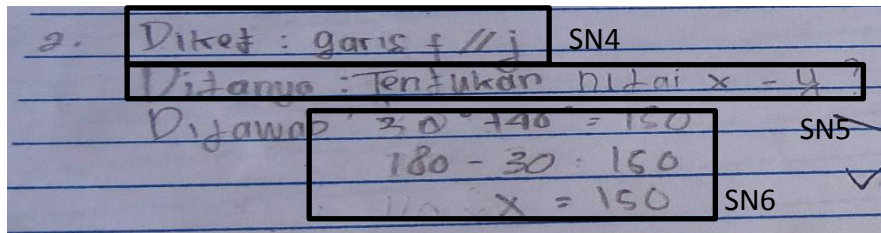 2. Diket : garis f // j SN4
Ditanya : Tentukan nilai x - y ?
Dijawab 30° +40° = 150 SN5
180 - 30 : 150
x = 150 SN6